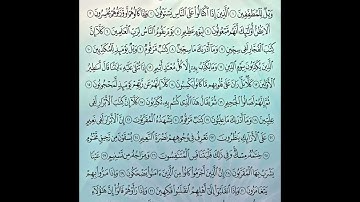 وَيْلٌ لِّلْمُطَفِّفِينَ ١ ٱلَّذِينَ إِذَا ٱكْتَالُوا۟ عَلَى ٱلنَّاسِ يَسْتَوْفُونَ ٢ وَإِذَا كَالُوهُمْ أَو وَّزَنُوهُمْ يُخْسِرُونَ ٣
أَلَا يَظُنُّ أُو۟لَٰٓئِكَ أَنَّهُم مَّبْعُوثُونَ ٤ لِيَوْمٍ عَظِيمٍ ٥ يَوْمَ يَقُومُ ٱلنَّاسُ لِرَبِّ ٱلْعَٰلَمِينَ ٦ كَلَّآ إِنَّ
كِتَٰبَ ٱلْفُجَّارِ لَفِى سِجِّينٍ ٧ وَمَآ أَدْرَىٰكَ مَا سِجِّينٌ ٨ كِتَٰبٌ مَّرْقُومٌ ٩ وَيْلٌ يَوْمَئِذٍ لِّلْمُكَذِّبِينَ ١٠
ٱلَّذِينَ يُكَذِّبُونَ بِيَوْمِ ٱلدِّينِ ١١ وَمَا يُكَذِّبُ بِهِۦٓ إِلَّا كُلُّ مُعْتَدٍ أَثِيمٍ ١٢ إِذَا تُتْلَىٰ عَلَيْهِ ءَايَٰتُنَا قَالَ أَسَٰطِيرُ
ٱلْأَوَّلِينَ ١٣ كَلَّا بَلْ رَانَ عَلَىٰ قُلُوبِهِم مَّا كَانُوا۟ يَكْسِبُونَ ١٤ كَلَّآ إِنَّهُمْ عَن رَّبِّهِمْ يَوْمَئِذٍ لَّمَحْجُوبُونَ ١٥
ثُمَّ إِنَّهُمْ لَصَالُوا۟ ٱلْجَحِيمِ ١٦ ثُمَّ يُقَالُ هَٰذَا ٱلَّذِى كُنتُم بِهِۦ تُكَذِّبُونَ ١٧ كَلَّآ إِنَّ كِتَٰبَ ٱلْأَبْرَارِ لَفِى
عِلِّيِّينَ ١٨ وَمَآ أَدْرَىٰكَ مَا عِلِّيُّونَ ١٩ كِتَٰبٌ مَّرْقُومٌ ٢٠ يَشْهَدُهُ ٱلْمُقَرَّبُونَ ٢١ إِنَّ ٱلْأَبْرَارَ لَفِى نَعِيمٍ ٢٢
عَلَى ٱلْأَرَآئِكِ يَنظُرُونَ ٢٣ تَعْرِفُ فِى وُجُوهِهِمْ نَضْرَةَ ٱلنَّعِيمِ ٢٤ يُسْقَوْنَ مِن رَّحِيقٍ مَّخْتُومٍ ٢٥
خِتَٰمُهُۥ مِسْكٌ وَفِى ذَٰلِكَ فَلْيَتَنَافَسِ ٱلْمُتَنَٰفِسُونَ ٢٦ وَمِزَاجُهُۥ مِن تَسْنِيمٍ ٢٧ عَيْنًا
يَشْرَبُ بِهَا ٱلْمُقَرَّبُونَ ٢٨ إِنَّ ٱلَّذِينَ أَجْرَمُوا۟ كَانُوا۟ مِنَ ٱلَّذِينَ ءَامَنُوا۟ يَضْحَكُونَ ٢٩ وَإِذَا مَرُّوا۟ بِهِمْ
يَتَغَامَزُونَ ٣٠ وَإِذَا ٱنقَلَبُوٓا۟ إِلَىٰٓ أَهْلِهِمُ ٱنقَلَبُوا۟ فَكِهِينَ ٣١ وَإِذَا رَأَوْهُمْ قَالُوٓا۟ إِنَّ هَٰٓؤُلَآءِ